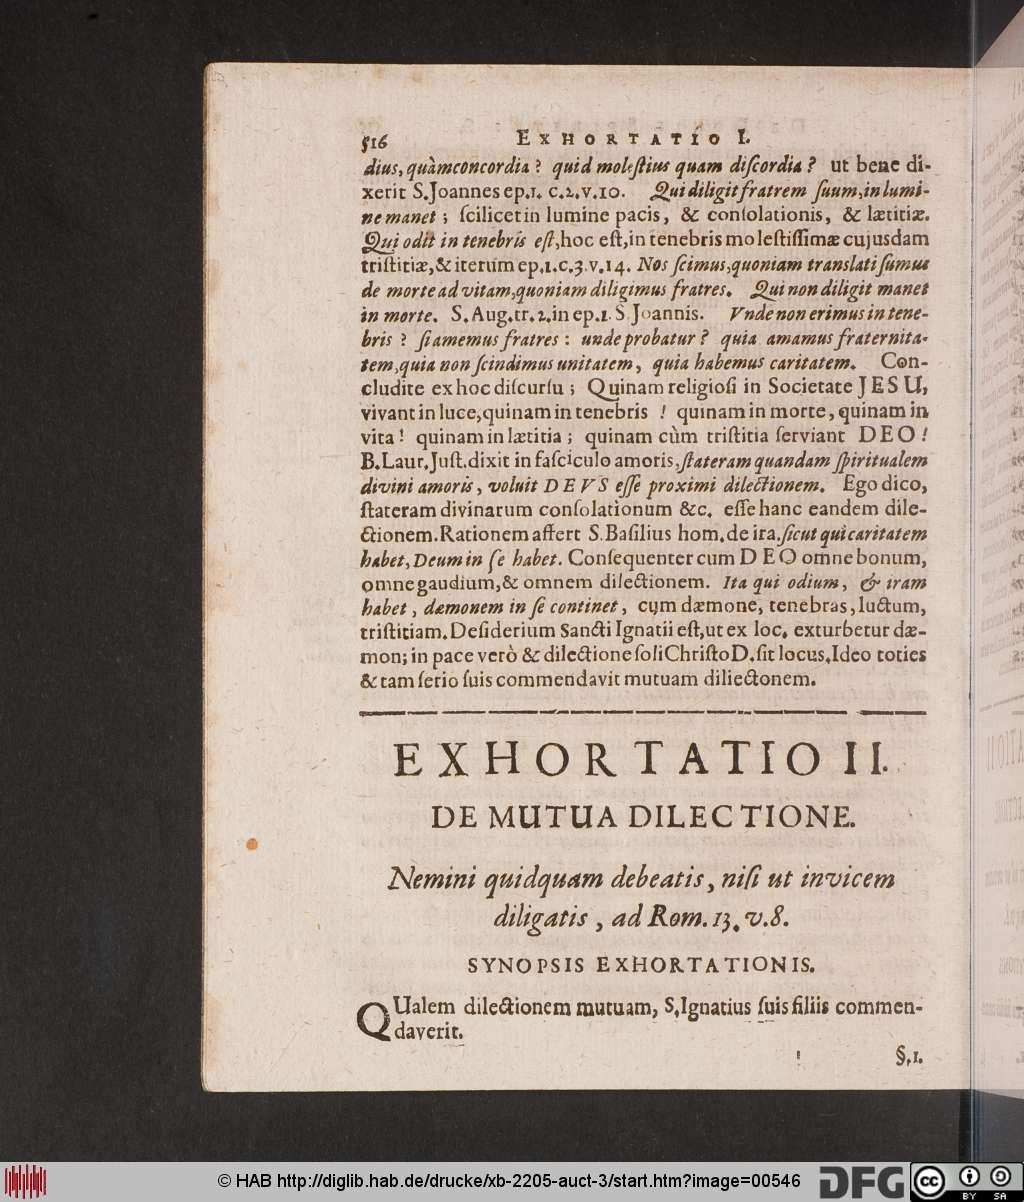 516 EXHORTATIO I.
dius, quàm concordia? quid molestius quam discordia? ut bene di-
xerit S. Joannes ep. 1. c. 2. v. 10. Qui diligit fratrem suum, in lumi-
ne manet; scilicet in lumine pacis, & consolationis, & lætitiæ.
Qui odit in tenebris est, hoc est, in tenebris molestissimæ cujusdam
tristitiæ, & iterum ep. 1. c. 3. v. 14. Nos scimus, quoniam translati sumus
de morte ad vitam, quoniam diligimus fratres. Qui non diligit manet
in morte. S. Aug. tr. 2. in ep. 1. S Joannis. Vnde non erimus in tene-
bris? si amemus fratres: unde probatur? quia amamus fraternita-
tem, quia non scindimus unitatem, quia habemus caritatem. Con-
cludite ex hoc discursu; Quinam religiosi in Societate JESU,
vivant in luce, quinam in tenebris! quinam in morte, quinam in
vita! quinam in lætitia; quinam cùm tristitia serviant DEO!
B. Laur. Just. dixit in fasciculo amoris, stateram quandam spiritualem
divini amoris, voluit DEVS esse proximi dilectionem. Ego dico,
stateram divinarum consolationum &c. esse hanc eandem dile-
ctionem. Rationem affert S. Basilius hom. de ira. sicut qui caritatem
habet, Deum in se habet. Consequenter cum DEO omne bonum,
omne gaudium, & omnem dilectionem. Ita qui odium, & iram
habet, dæmonem in se continet, cum dæmone, tenebras, luctum,
tristitiam. Desiderium Sancti Ignatii est, ut ex loc. exturbetur dæ-
mon; in pace verò & dilectione soli Christo D. sit locus. Ideo toties
& tam serio suis commendavit mutuam diliectonem.
EXHORTATIO II.
DE MUTUA DILECTIONE.
Nemini quidquam debeatis, nisi ut invicem
diligatis, ad Rom. 13. v. 8.
SYNOPSIS EXHORTATIONIS.
QUalem dilectionem mutuam, S. Ignatius suis filiis commen-
daverit.
§. 1.
© HAB http://diglib.hab.de/drucke/xb-2205-auct-3/start.htm?image=00546 DFG cc BY SA